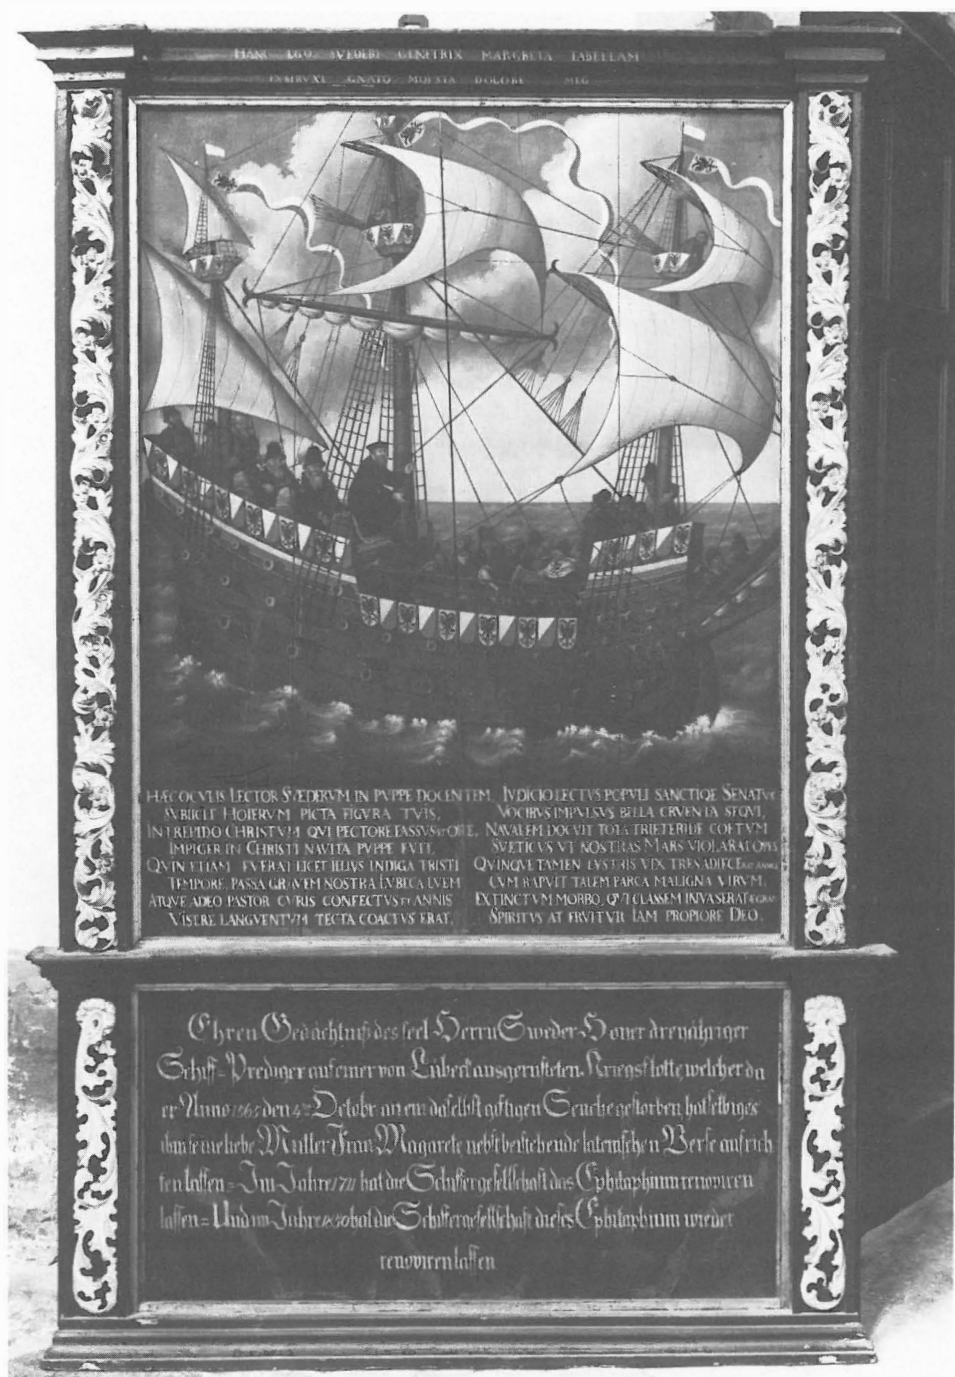 HANC EGO SVEDERI GENETRIX MARGRETA TABELLAM
GNATO MOESTA DOLORE MEO
HÆC OCVLIS LECTOR SVÆDERVM IN PVPPE DOCENTEM
SVBIICIT HOIERVM PICTA FIGVRA TVIS,
INTREPIDO CHRISTVM QVI PECTORE FASSVS ET ORE,
IMPIGER IN CHRISTI NAVITA PVPPE FVIT.
QVIN ETIAM FVERAT LICET ILLIVS INDIGA TRISTI
TEMPORE, PASSA GRAVEM NOSTRA LVBECA LVEM
ATQVE ADEO PASTOR CVRIS CONFECTVS ET ANNIS
VISERE LANGVENTVM TECTA COACTVS ERAT,
IVDICIO LECTVS POPVLI SANCTIQE SENATVS
VOCIBVS IMPVLSVS BELLA CRVENTA SEQVI,
NAVALEM DOCVIT TOTA TRIETERIDE COETVM
SVETICVS VT NOSTRAS MARS VIOLARAT OPES
QVINQVE TAMEN LVSTRIS VIX TRES ADIECERAT ANNOS
CVM RAPVIT TALEM PARCA MALIGNA VIRVM,
EXTINCTVM MORBO, QVI CLASSEM INVASERAT
SPIRITVS AT FRVITVR IAM PROPIORE DEO.
Ehren Gedächtniß des seel Herrn Sweder Hoyer dreyjähriger
Schiff=Prediger auf einer von Lübeck ausgerüsteten Kriegsflotte, welcher da
er Anno 1565 den Octobr an em daselbst giftigen Seuche gestorben hat selbiges
ihm seine liebe Mutter Frau Magarete nebst bestehende lateinschen Verse aufrich
ten lassen = Im Jahre 1711 hat die Schiffergesellschaft das Ephitaphium renoviren
lassen = Und im Jahre 1850 hat die Schiffergesellschaft dieses Ephitaphium wieder
renoviren lassen